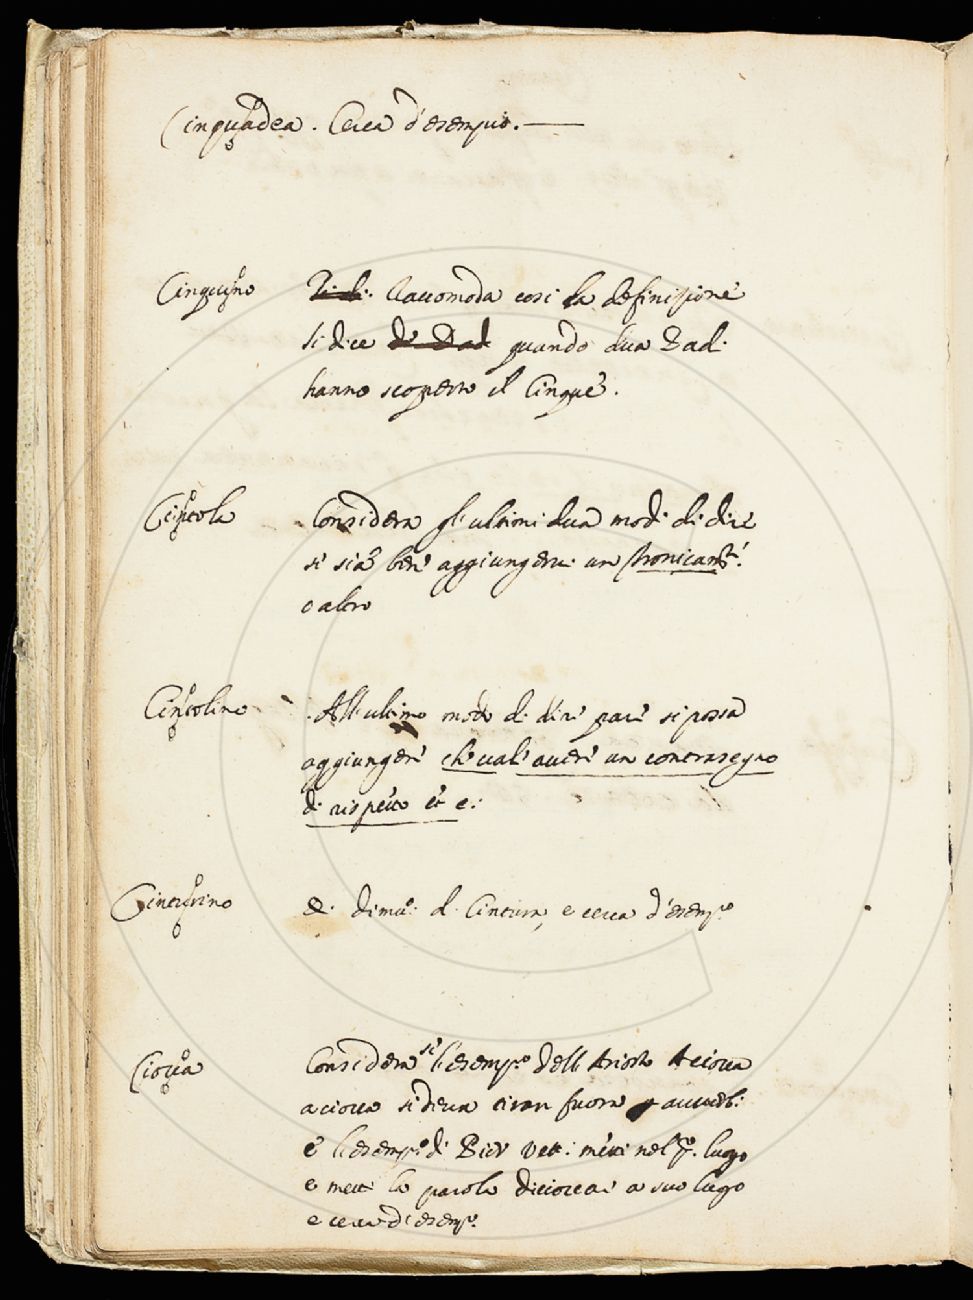 Cinquadea. Cerca d'esempio.
Cinquino Raccomoda cosi la definizione
si dice quando dua Dadi
hanno scoperto il Cinque.
Cintola Considera gli ultimi dua modi di dire
se sia bene aggiungervi un
o altro
Cintolino All ultimo modo di dire pare si possa
aggiungere che vale avere un contrasegno
di rispetto et e.
Cinturino dimi: di Cintura, e cerca d'esemp.o
Ciocca Considera se l'esemp.o dell Ariosto A ciocca
a ciocca si deva tirar fuora
e l'esemp.o di Pier Vett: metti nel p.o luogo
e metti la parola a suo luogo
e cerca d'esemp.o